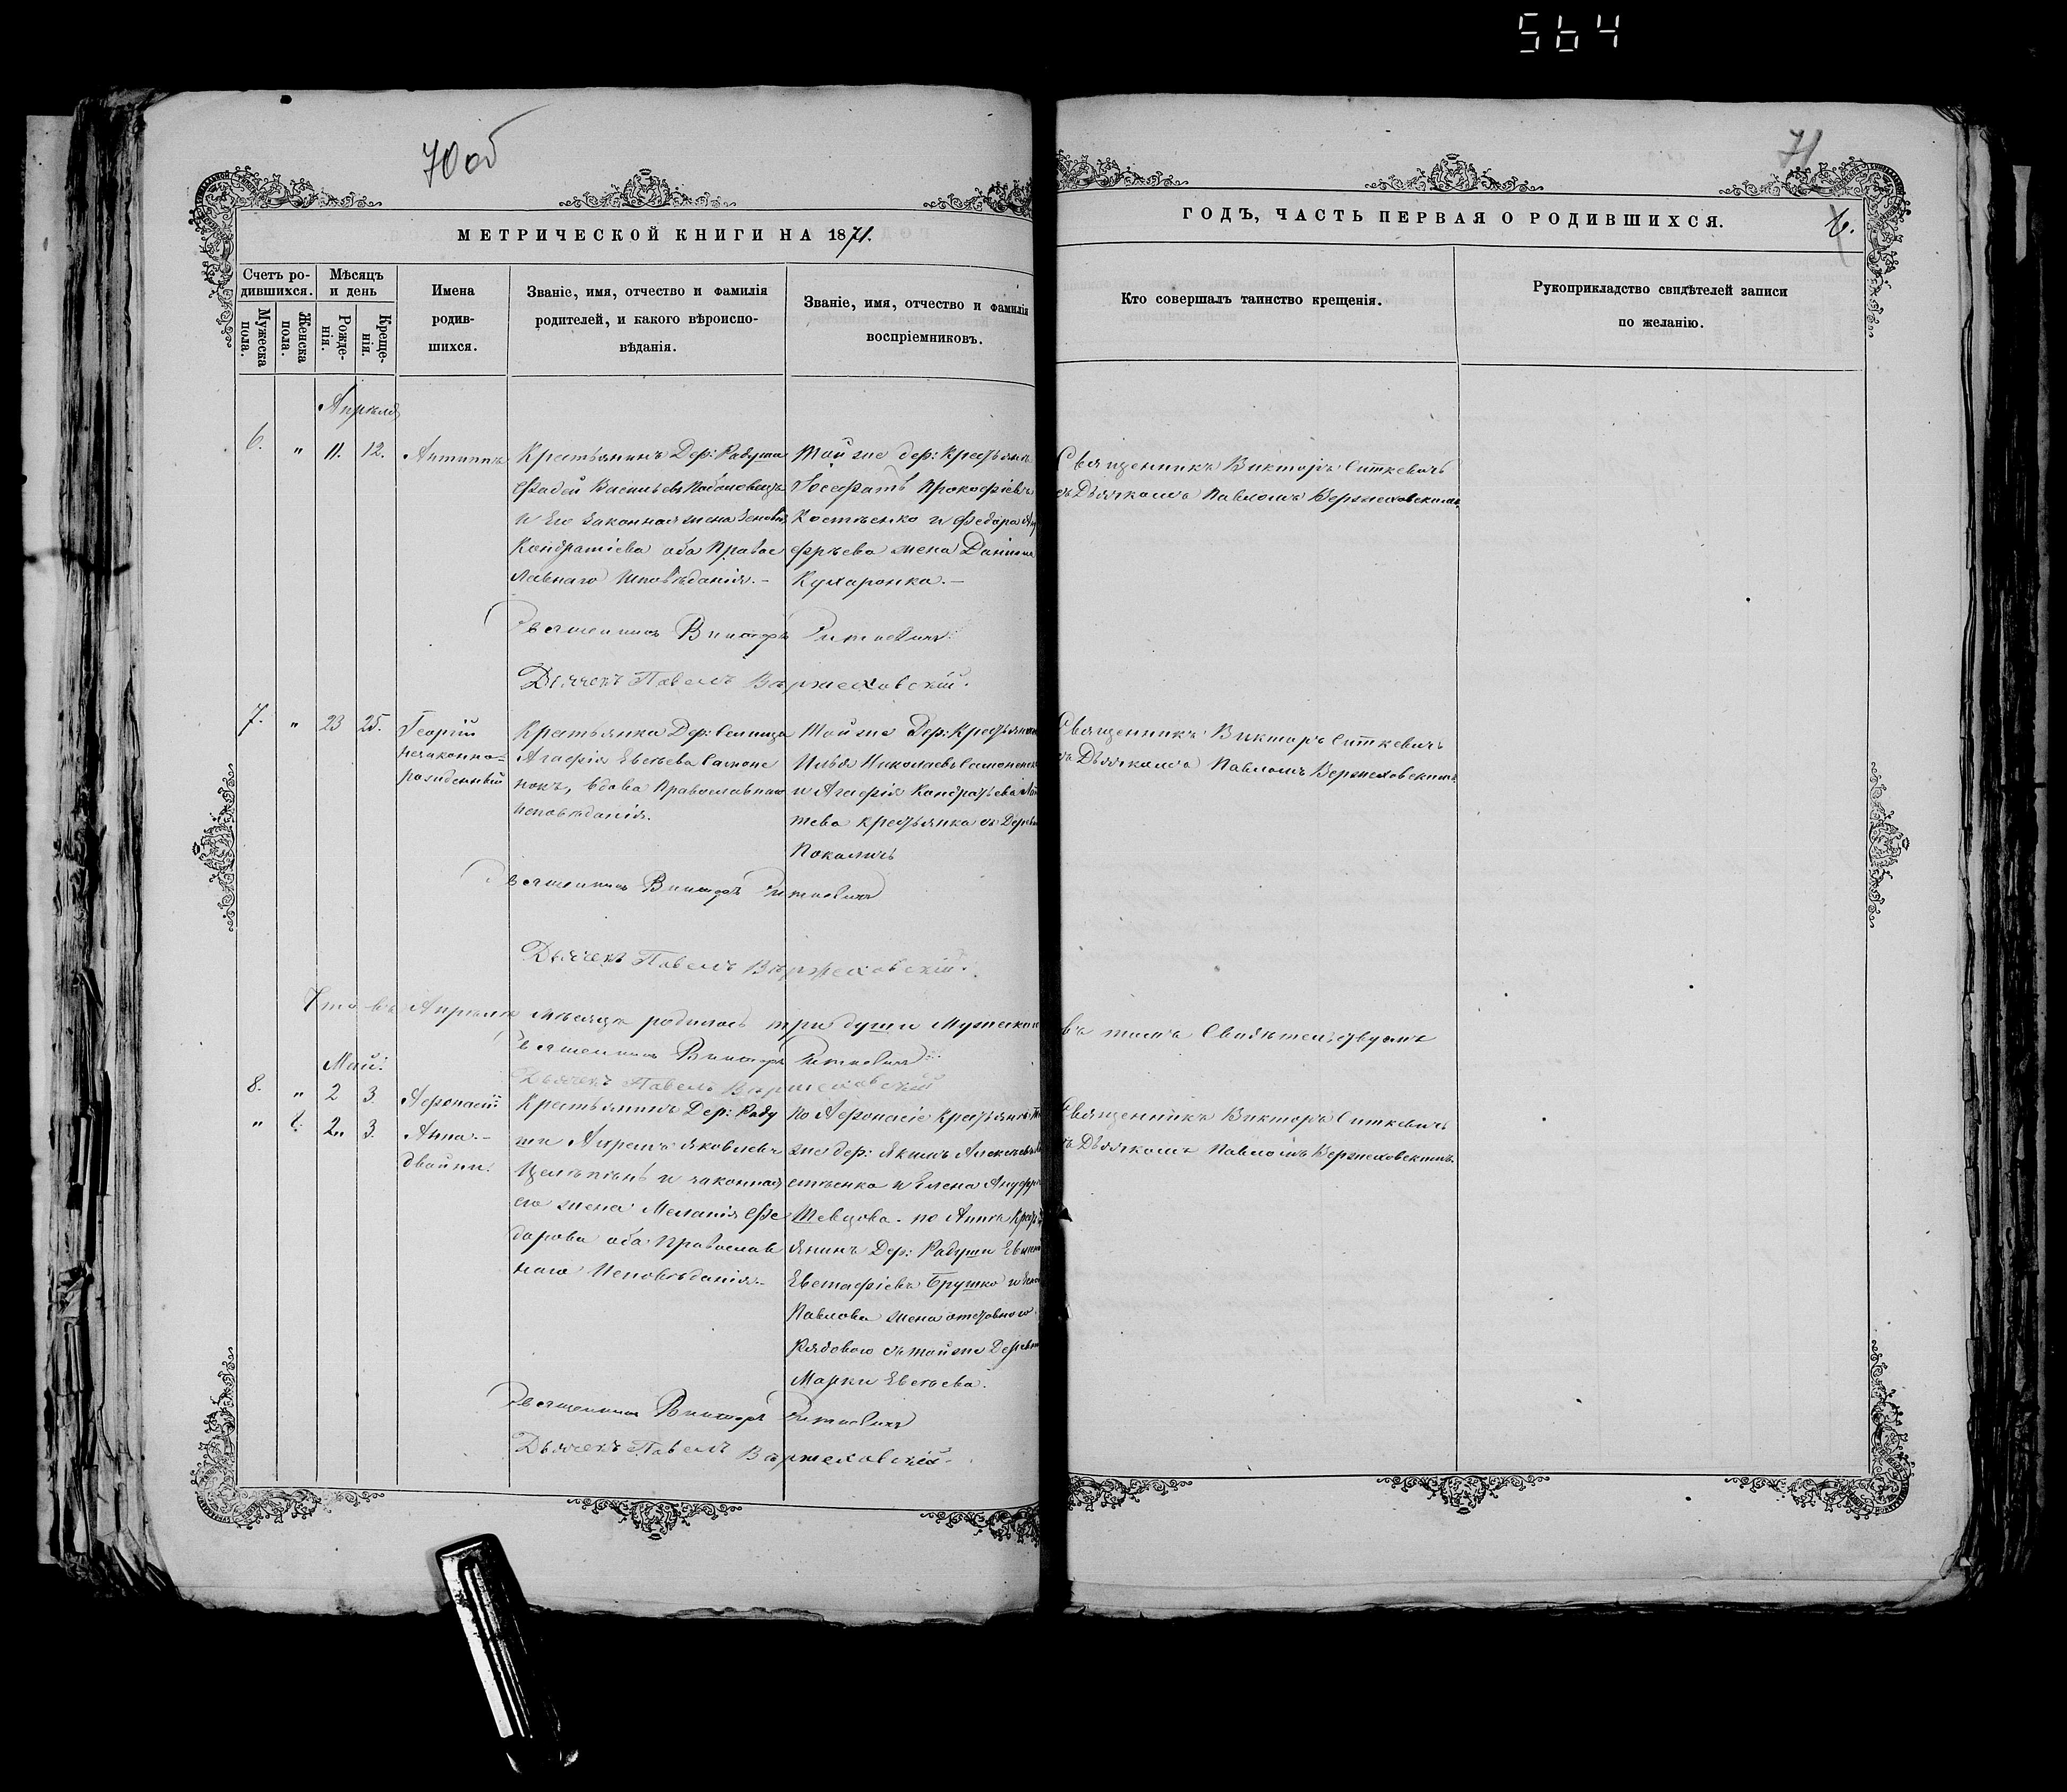 564
70 об
71
МЕТРИЧЕСКОЙ КНИГИ НА 1871.
ГОДЪ, ЧАСТЬ ПЕРВАЯ О РОДИВШИХСЯ.
6.
Счетъ ро-
дившихся.
Мужеска
пола.
Женска
пола.
Мѣсяцъ
и день
Рожде-
нія.
Креще-
нія.
Имена
родив-
шихся.
Званіе, имя, отчество и фамилія
родителей, и какого вѣроиспо-
вѣданія.
Званіе, имя, отчество и фамилія
воспріемниковъ.
Кто совершалъ таинство крещенія.
Рукоприкладство свидѣтелей записи
по желанію.
Апрѣля
6. " 11. 12. Антипъ
Крестьянинъ Дер: Радуша
Фадей Васильевъ
и Его законная жена
Кондратіева оба Правос
лавнаго Исповѣданія.-
Той же дер: Крестьянинъ
Іосафатъ Прокофіевъ
Костѣенко и Федора
жена
Кухаронка.-
Священникъ Викторъ Ситкевичъ
съ Дьячкомъ Павломъ Вержеховскимъ
Священникъ Викторъ Ситкевичъ
Дьячекъ Павелъ Вержеховскій.
7. " 23 25. Георгій
незаконно-
рожденный
Крестьянка Дер:
Агафія Евсѣева
вдова Православнаго
исповѣданія.
Той же Дер: Крестьянинъ
Илья Николаевъ
и Агафія Кондратьева
крестьянка съ
Покаличь
Священникъ Викторъ Ситкевичъ
съ Дьячкомъ Павломъ Вержеховскимъ
Священникъ Викторъ Ситкевичъ
Дьячекъ Павелъ Вержеховскій.
Что въ Апрѣлѣ Мѣсяцѣ родилось три души Мужеска
въ томъ Свидѣтельствуемъ
Священникъ Викторъ Ситкевичъ
Дьячекъ Павелъ Вержеховскій
Май:
8. " 2 3 Афонасій
" 2. 3. Анна.-
двойни.
Крестьянинъ Дер: Раду
ши Яковлевъ
и законная
его жена Меланія Фе
дорова оба Православ
наго Исповѣданія.-
По Афонасіе Крестьянинъ
же дер: Якимъ Алексѣевъ
и Елена
Шевцова. по Аннѣ Крестъ
янинъ Дер: Радуши
Евстафіевъ Брушко и
Павлова жена
Рядового съ той же
Марки Евсѣева.
Священникъ Викторъ Ситкевичъ
съ Дьячкомъ Павломъ Вержеховскимъ.
Священникъ Викторъ Ситкевичъ
Дьячекъ Павелъ Вержеховскій.